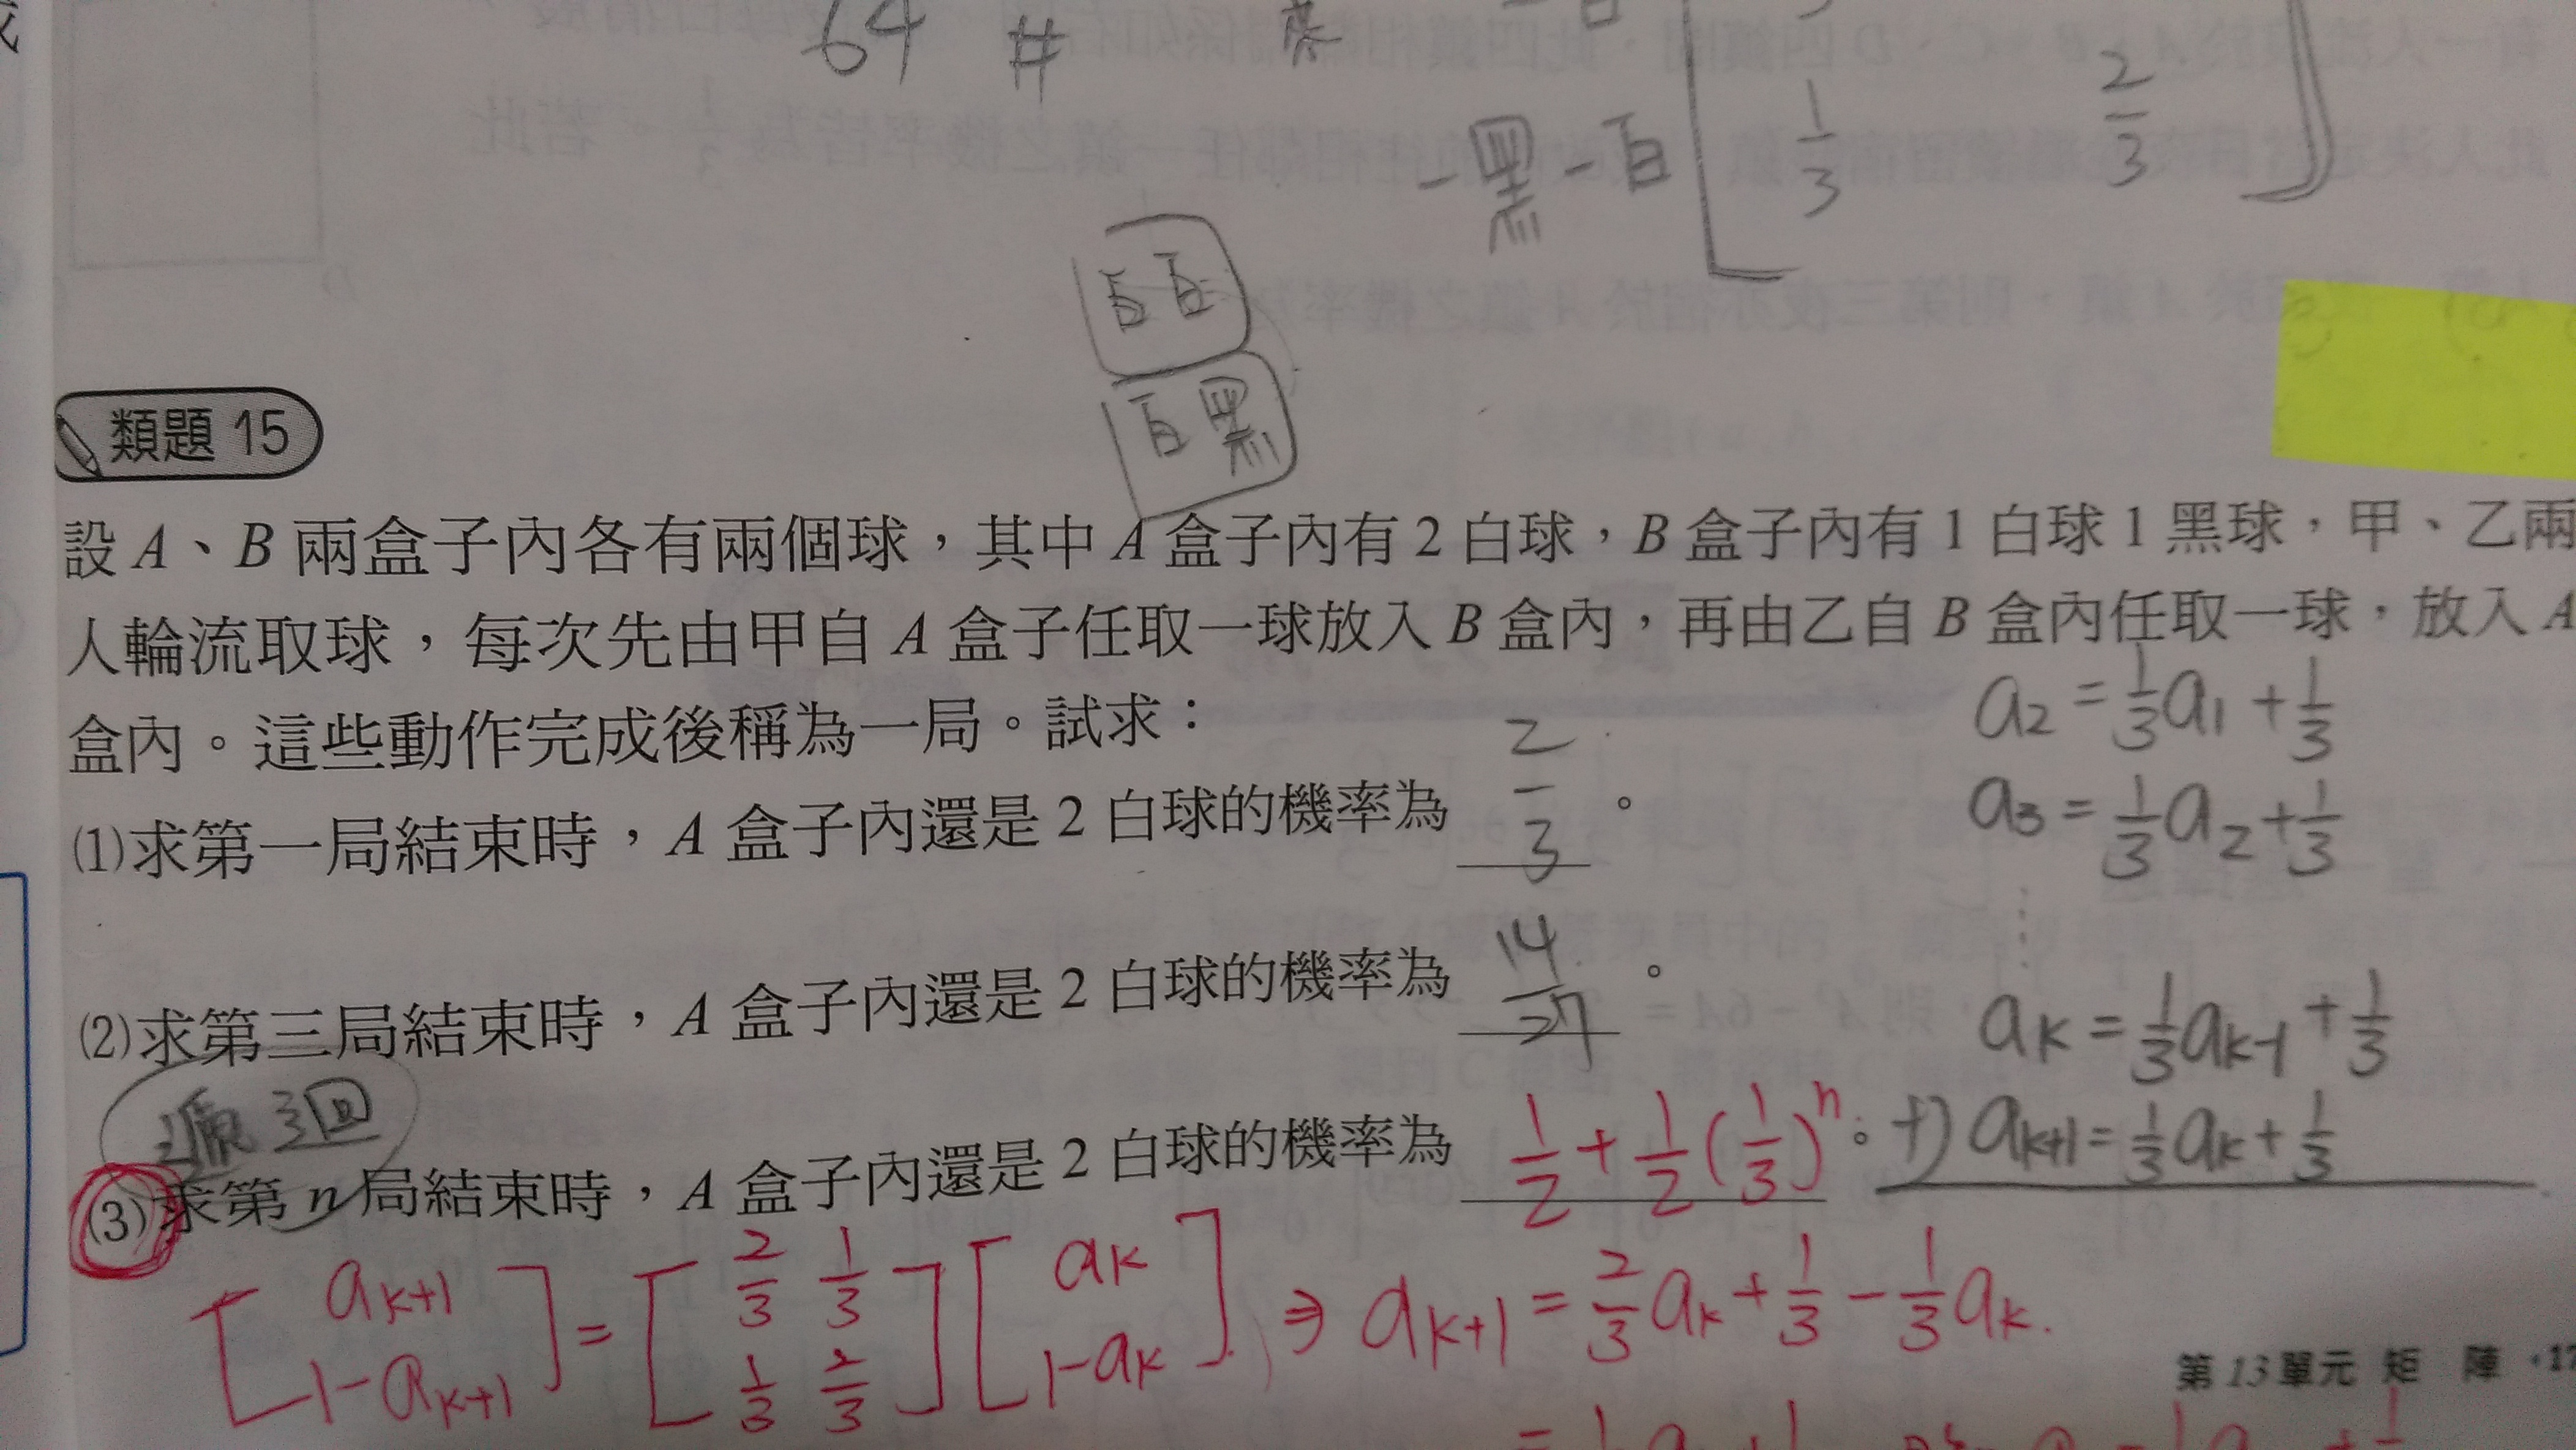 64 #
2/3
1/3
一黑一白
白白
白黑
類題 15
設 A、B 兩盒子內各有兩個球,其中 A 盒子內有 2 白球,B 盒子內有 1 白球 1 黑球,甲、乙兩
人輪流取球,每次先由甲自 A 盒子任取一球放入 B 盒內,再由乙自 B 盒內任取一球,放入 A
盒內。這些動作完成後稱為一局。試求:
a2 = 1/3 a1 + 1/3
⑴求第一局結束時,A 盒子內還是 2 白球的機率為 2/3 。
a3 = 1/3 a2 + 1/3
⋮
⑵求第三局結束時,A 盒子內還是 2 白球的機率為 14/27 。
ak = 1/3 ak-1 + 1/3
⑶求第 n 局結束時,A 盒子內還是 2 白球的機率為 1/2 + 1/2 (1/3)^n 。
+) ak+1 = 1/3 ak + 1/3
[ak+1 1-ak+1] = [2/3 1/3 1/3 2/3] [ak 1-ak] ⇒ ak+1 = 2/3 ak + 1/3 - 1/3 ak.
第 13 單元 矩 陣 · 17